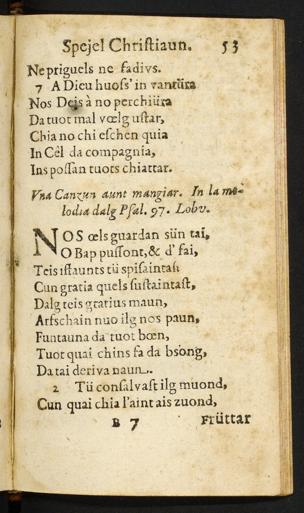 Spejel Christiaun. 53
Ne priguels ne fadivs.
7 A Dieu huoss' in vantüra
Nos Deis à no perchiüra
Da tuot mal vœlg ustar,
Chia no chi eschen quia
In Cêl da compagnia,
Ins possan tuots chiattar.
Vna Canzun aunt mangiar. In la me-
lodia dalg Psal. 97. Lobv.
NOS œls guardan sün tai,
O Bap pussont, & d' fai,
Teis istaunts tü spisaintast
Cun gratia quels sustaintast,
Dalg teis gratius maun,
Artschain nuo ilg nos paun,
Funtauna da tuot bœn,
Tuot quai chins fa da bsöng,
Da tai deriva naun.
2 Tü consalvast ilg muond,
Cun quai chia l'aint ais zuond,
B 7 Früttar